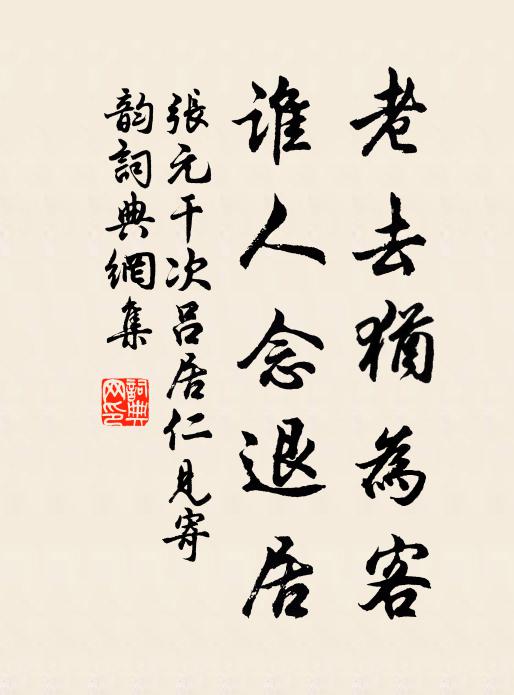 老去猶為客
誰人念退居
張元干次呂居仁見寄
韵詞典網集
詞典
网印